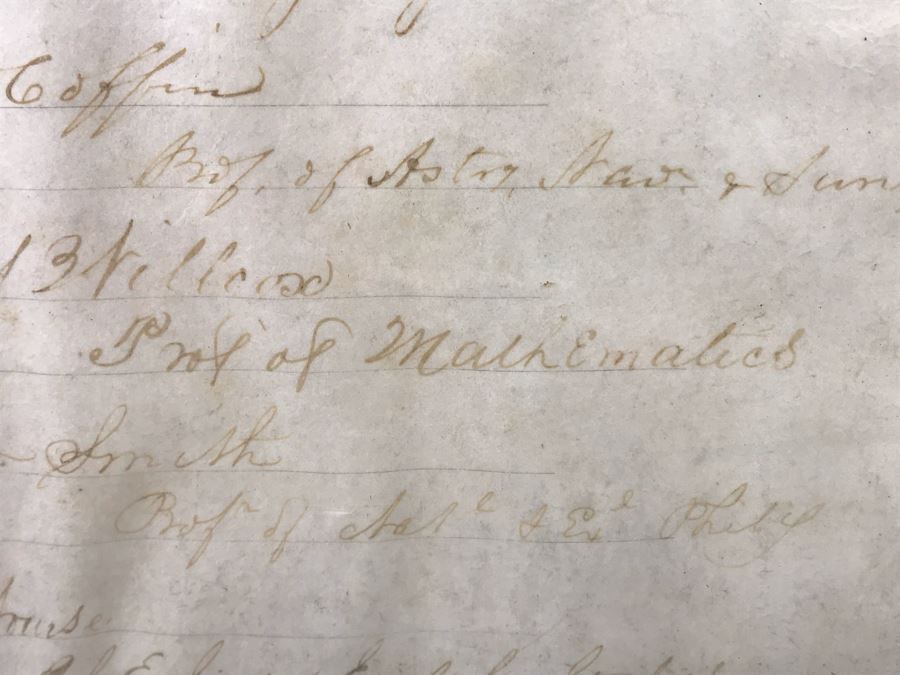 Coffin
Prof. of Astry, Navn & Surv
Willcox
Prof of Mathematics
Smith
Profr of Natl & Exl Philly